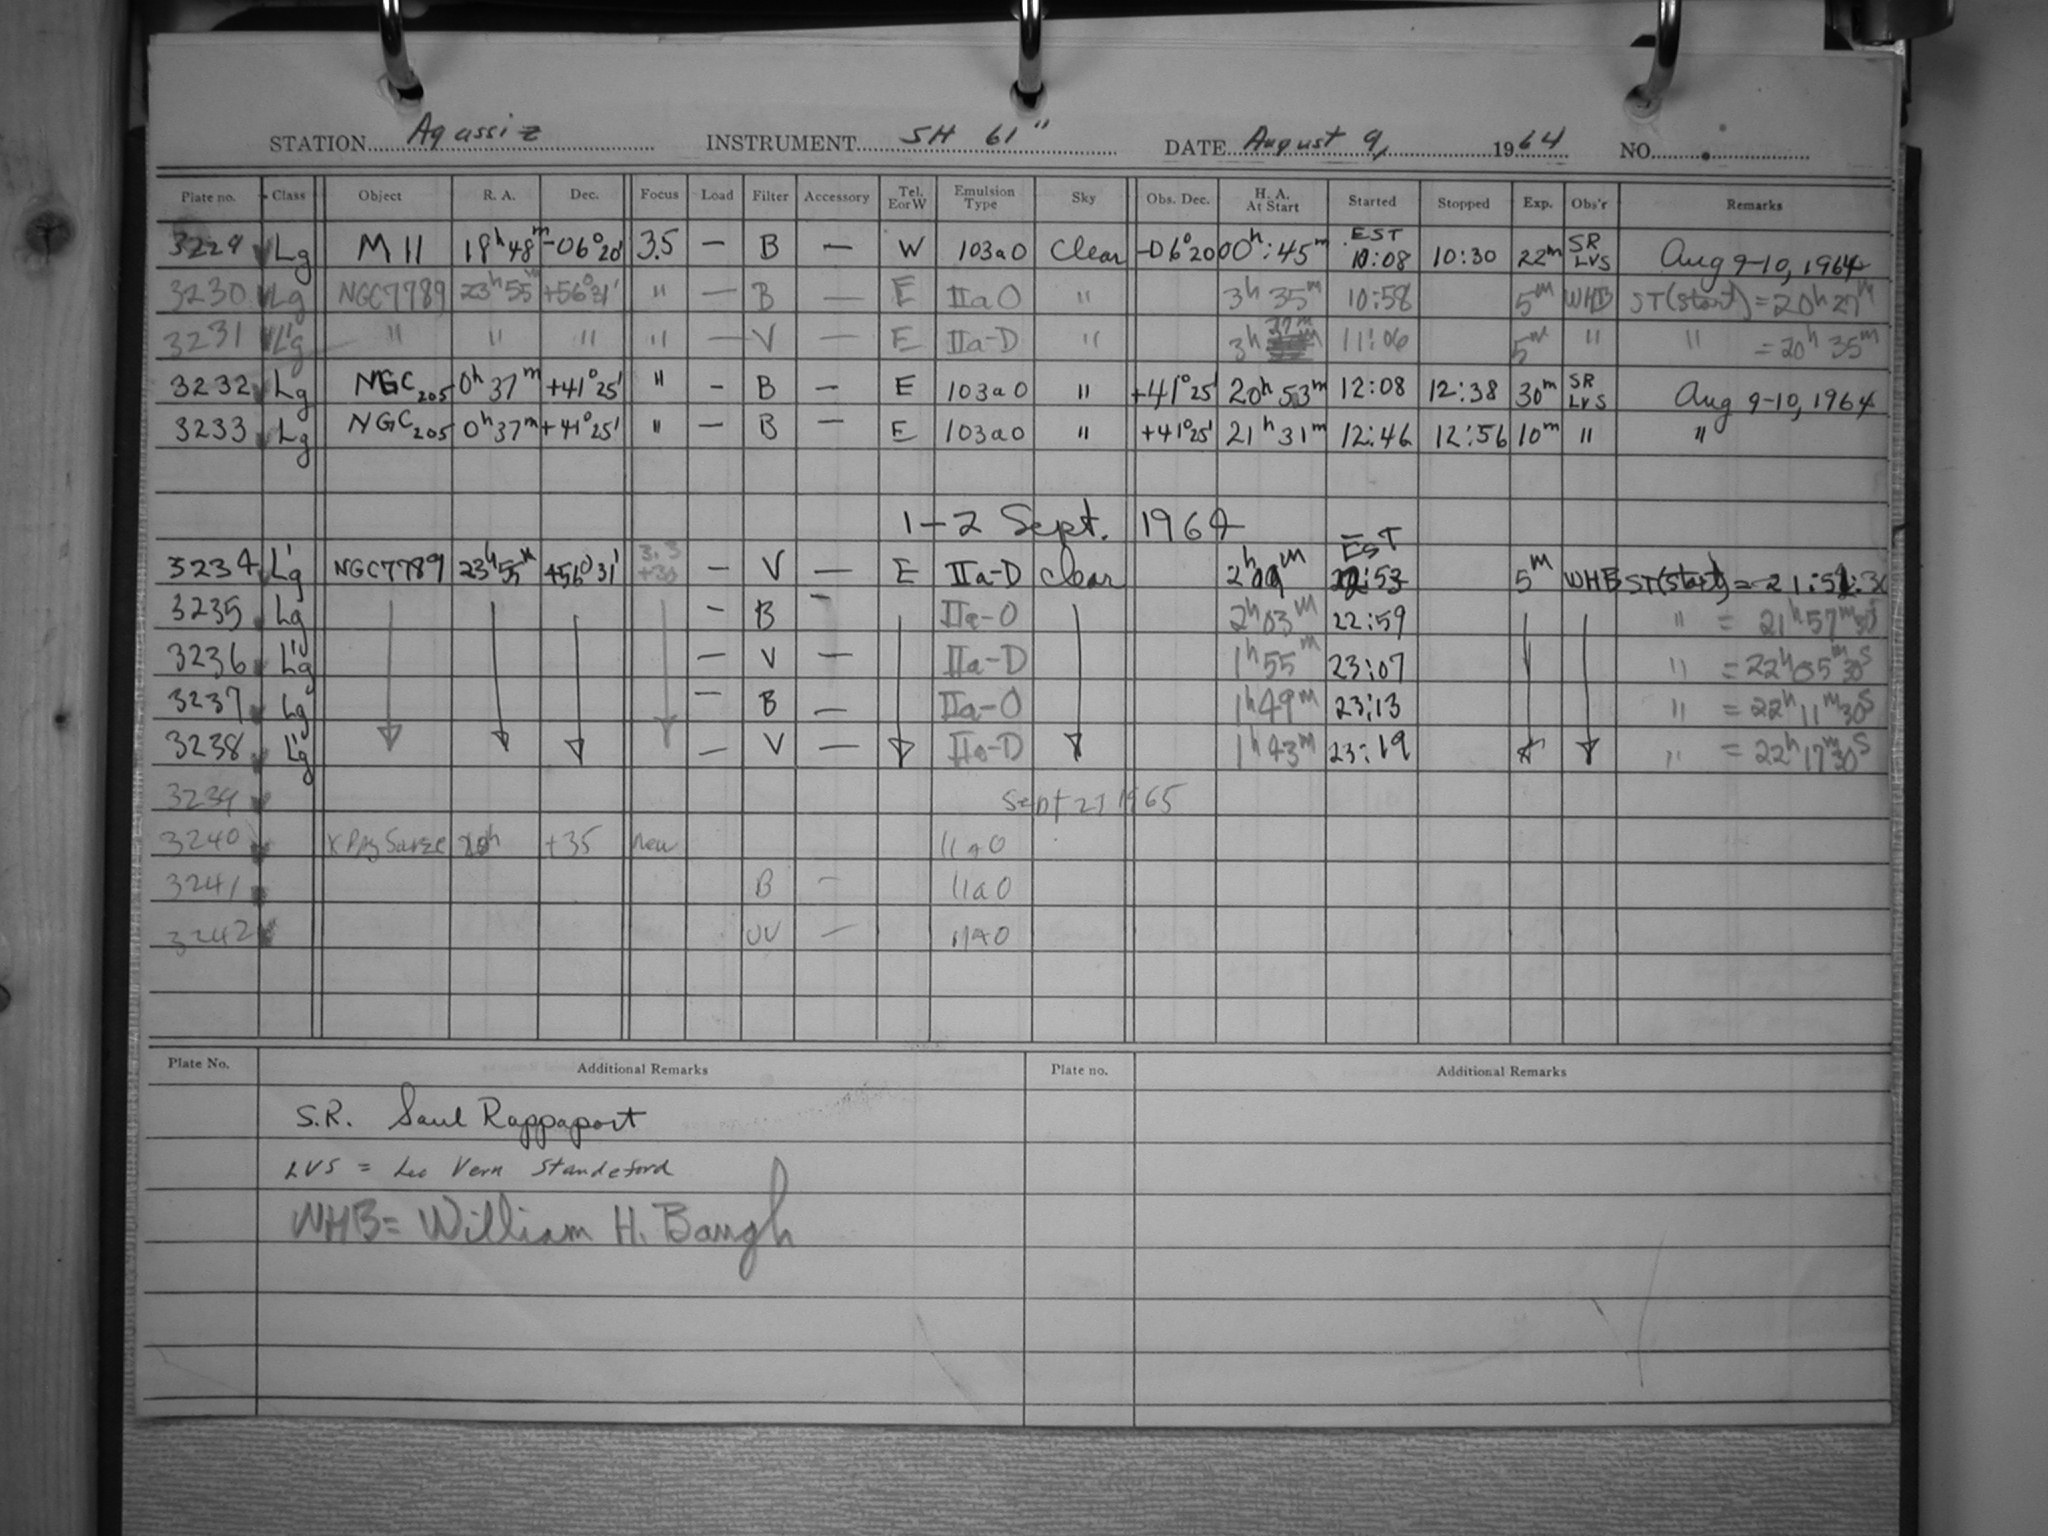 STATION Agassiz INSTRUMENT SH 61" DATE August 9, 1964 NO.
Plate no. Class Object R. A. Dec. Focus Load Filter Accessory Tel. E or W Emulsion Type Sky Obs. Dec. H. A. At Start Started Stopped Exp. Obs'r Remarks
3229 Lg M 11 18h 48m -06°20' 3.5 — B — W 103a0 Clear -06°20 00h:45m EST 10:08 10:30 22m SR LVS Aug 9-10, 1964
3230 Lg NGC7789 23h 55m +56°31' " — B — E IIa0 " 3h 35m 10:58 5m WHB ST(start) = 20h 27m
3231 L'g " " " " — V — E IIa-D " 3h 27m 11:06 5m " " = 20h 35m
3232 Lg NGC205 0h 37m +41°25' " — B — E 103a0 " +41°25' 20h 53m 12:08 12:38 30m SR LVS Aug 9-10, 1964
3233 Lg NGC205 0h 37m +41°25' " — B — E 103a0 " +41°25' 21h 31m 12:46 12:56 10m " "
1-2 Sept. 1964
3234 L'g NGC7789 23h 55m +56° 31' 3.3 +30 — V — E IIa-D clear 2h 09m EST 22:53 5m WHB ST(start) =
3235 Lg — B — IIa-O 2h 03m 22:59 " = 21h 57m 30s
3236 L'g — V — IIa-D 1h 55m 23:07 " = 22h 05m 30s
3237 Lg — B — IIa-O 1h 49m 23:13 " = 22h 11m 30s
3238 L'g — V — IIa-D 1h 43m 23:19 " = 22h 17m 30s
3239 Sept 1965
3240 20h +35 new IIa0
3241 B — IIa0
3242 UV — IIa0
Plate No. Additional Remarks Plate no. Additional Remarks
S.R. Saul Rappaport
LVS = Leo Vern Standeford
WHB = William H. Baugh